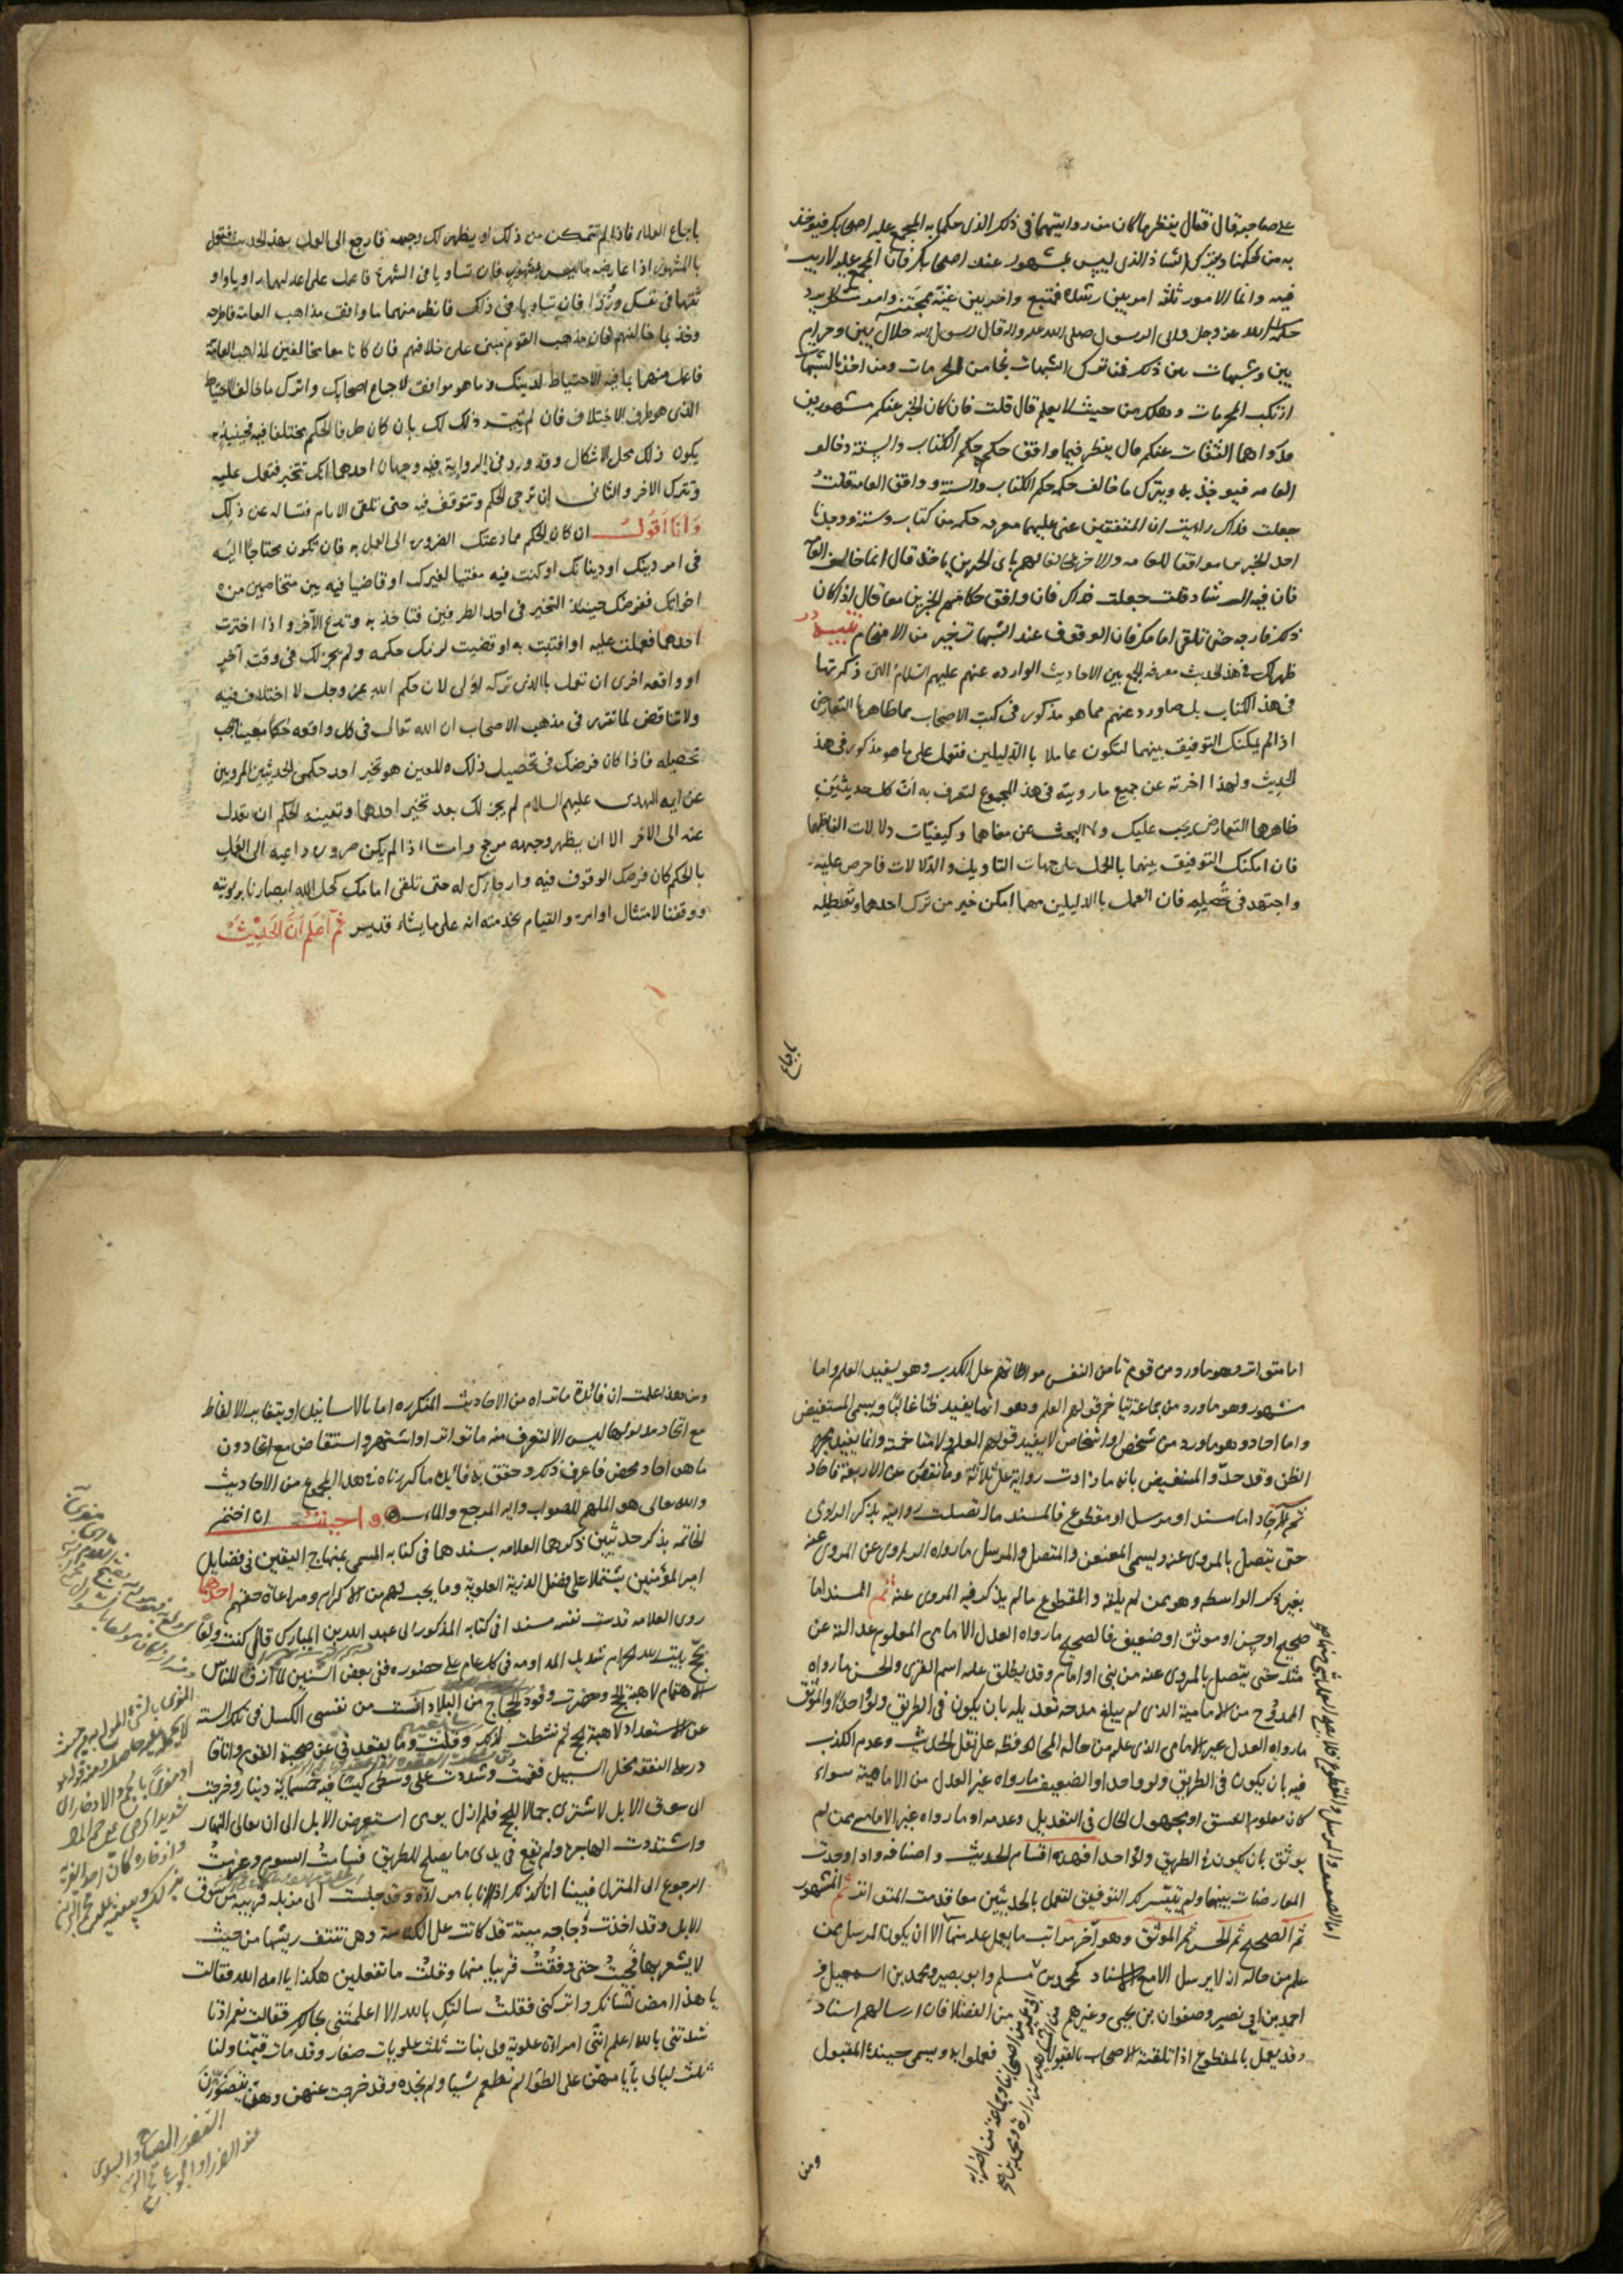 على صاحبه قال فقال ينظر ما كان من روايتهما فى ذلك الذى حكما به المجمع عليه اصحابك فيؤخذ
به من حكمنا ويترك الشاذ الذى ليس بمشهور عند اصحابك فان المجمع عليه لا ريب
فيه وانما الامور ثلثة امر بين رشده فمتبع وامر بين غيه فمجتنب وامر مشكل يرد
حكمه الى الله عز وجل والى الرسول صلى الله عليه واله قال رسول الله حلال بين وحرام
بين وشبهات بين ذلك فمن ترك الشبهات نجا من المحرمات ومن اخذ بالشبهات
ارتكب المحرمات وهلك من حيث لا يعلم قال قلت فان كان الخبر عنكم مشهورين
قد رواهما الثقات عنكم قال ينظر فيما وافق حكمه حكم الكتاب والسنة وخالف
العامه فيؤخذ به ويترك ما خالف حكمه حكم الكتاب والسنة ووافق العامه قلت
جعلت فداك رايت ان المفتيين عنى عليهما معرفه حكمه من كتاب وسنة ووجدنا
احد الخبرين موافقا للعامه والاخر مخالفا لهم باى الخبرين ياخذ قال انما خالف العامة
فان فيه الرشاد قلت جعلت فداك فان وافق حكامهم الخبرين معا قال اذا كان
ذلك فارجه حتى تلقى امامك فان الوقوف عند الشبهات خير من الاقتحام تنبيه قد
ظهر لك فى هذا الحديث معرفه الجمع بين الاحاديث الوارده عنهم عليهم السلام التى ذكرتها
فى هذا الكتاب بل ما ورد عنهم مما هو مذكور فى كتب الاصحاب مما ظاهرها التعارض
اذا لم يمكنك التوفيق بينهما لتكون عاملا بالدليلين فتعمل على ما هو مذكور فى هذا
الحديث ولهذا اخرته عن جميع ما رويته فى هذا المجموع لتعرف به ان كل حديثين
ظاهرهما التعارض يجب عليك اولا البحث عن معناهما وكيفيات دلالات الفاظهما
فان امكنك التوفيق بينهما بالحمل على جهات التاويل والدلالات فاحرص عليه
واجتهد فى تحصيله فان العمل بالدليلين مهما امكن خير من ترك احدهما وتعطيله
باجماع
باجماع العلماء فاذا لم تتمكن من ذلك او يظهر لك وجهه فارجع الى العمل بهذا الحديث فتعمل
بالمشهور اذا عارضه ما ليس بمشهور فان تساويا فى الشهرة فاعمل على اعدلهما راويا واو
ثقهما فى نقله وزد فان تساويا فى ذلك فانظر منهما ما وافق مذاهب العامة فاطرحه
وخذ بما خالفهم فان مذهب القوم مبنى على خلافهم فان كانا معا مخالفين لمذاهب العامة
فاعمل منهما بما فيه الاحتياط لدينك وما هو موافق لاجماع اصحابك واترك ما خالف الاحتياط
الذى هو طرف الاختلاف فان لم يتيسر ذلك لك بان كان طرفا الحكم مختلفا فيه فحينئذ
يكون ذلك محل الاشكال وقد ورد فى الرواية فيه وجهان احدهما انك تتخير فتعمل عليه
وتترك الاخر والثانى ان ترجى الحكم وتتوقف فيه حتى تلقى الامام فتساله عن ذلك
وانا اقول ان كان الحكم مما دعتك الضرورة الى العمل به فان تكون محتاجا اليه
فى امر دينك او ديانتك او كنت فيه مفتيا لغيرك او قاضيا فيه بين متخاصمين من
اخوانك ففرضك حينئذ التخير فى احد الطرفين فتاخذ به وتدع الآخر واذا اخترت
احدهما فعملت عليه او افتيت به او قضيت لزمك حكمه ولم يجز لك فى وقت آخر
او واقعه اخرى ان تعمل بالذى تركه اولى لان حكم الله عز وجل لا اختلاف فيه
ولا تناقض لما تقرر فى مذهب الاصحاب ان الله تعالى فى كل واقعه حكما معينا يجب
تحصيله فاذا كان فرضك فى تحصيل ذلك المعين هو تخير احد حكمى الحديثين المرويين
عن ايمه الهدى عليهم السلام لم يجز لك بعد تخير احدهما وتعينه للحكم ان تعدل
عنه الى الاخر الا ان يظهر وجهه مرجح واما اذا لم يكن ضروره داعيه الى العمل
بالحكم كان فرضك الوقوف فيه وارجاء له حتى تلقى امامك كحل الله ابصارنا برويته
ووفقنا لامتثال اوامره والقيام بخدمته انه على ما يشاء قدير ثم اعلم ان الحديث
اما متواتر وهو ما ورد من قوم تامن النفس مواطاتهم على الكذب وهو يفيد العلم واما
مشهور وهو ما ورد من جماعة تتاخم قولهم العلم وهو انما يفيد ظنا غالبا ويسمى المستفيض
واما احاد وهو ما ورد من شخص او اشخاص لا يفيد قولهم العلم ولا متاخمة وانما يفيد مجرد
الظن وقد حد المستفيض بانه ما زادت رواية على ثلاثة وما نقص عن الاربعة فاحاد
ثم الاحاد اما مسند او مرسل او مقطوع فالمسند ما اتصلت روايته بذكر الراوى
حتى يتصل بالمروى عنه ويسمى المعنعن والمتصل والمرسل ما رواه الراوى عن المروى عنه
بغير ذكر الواسطه وهو ممن لم يلقه والمقطوع ما لم يذكر فيه المروى عنه ثم المسند اما
صحيح او حسن او موثق او ضعيف فالصحيح ما رواه العدل الامامى المعلوم عدالته عن
مثله حتى يتصل بالمروى عنه من نبى او امام وقد يطلق عليه اسم القوى والحسن ما رواه
الممدوح من الامامية الذى لم يبلغ مدحه تعديله بان يكون فى الطريق ولو واحدا والموثق
ما رواه العدل غير الامامى الذى علم من حاله المحافظه على نقل الحديث وعدم الكذب
فيه بان يكون فى الطريق ولو واحدا والضعيف ما رواه غير العدل من الامامية سواء
كان معلوم الفسق او مجهول الحال فى التعديل وعدمه او ما رواه غير الامامى ممن لم
يوثق بان يكون فى الطريق ولو واحدا فهذه اقسام الحديث واصنافه واذا وجدت
المعارضات بينهما ولم يتيسر لك التوفيق لتعمل بالحديثين معا قدمت المتواتر ثم المشهور
ثم الصحيح ثم الحسن ثم الموثق وهو آخر مراتب ما يعمل عليه منها الا ان يكون المرسل ممن
علم من حاله انه لا يرسل الا مع الاسناد كمحمد بن مسلم وابو بصير ومحمد بن اسمعيل و
احمد بن ابى نصير وصفوان بن يحيى وغيرهم من الفضلا فان ارسالهم اسناد
وقد يعمل بالمقطوع اذا تلقته الاصحاب بالقبول فعملوا به ويسمى حينئذ المقبول
ومن
ومن هذا علمت ان فائدة ما تراه من الاحاديث المتكرره اما بالاسانيد او بتغاير الالفاظ
مع اتحاد مدلولها ليس الا لتعرف منه ما تواتر او اشتهر واستفاض مع اتحاد دون
ما هو احاد محض فاعرف ذلك وحقق به فائدة ما كررناه فى هذا المجموع من الاحاديث
والله تعالى هو الملهم للصواب واليه المرجع والماب واحببت ان اختم
الخاتمه بذكر حديثين ذكرهما العلامه بسندهما فى كتابه المسمى بمنهاج اليقين فى فضايل
امير المؤمنين يشتملا على فضل الذرية العلوية وما يجب لهم من الاكرام ومراعاة حقهم احدهما
روى العلامه قدست نفسه مسندا فى كتابه المذكور الى عبد الله بن المبارك قال كنت ولعا
بحج بيت الله الحرام شديد المداومه فى كل عام على حضوره ففى بعض السنين لما ازف للناس
الاهتمام لاهبة الحج وحضرت وفود الحجاج من البلاد آنست من نفسى الكسل فى تلك السنه
عن الاستعداد لاهبة الحج ثم نشطت لذلك وقلت وما يقعد فى عن صحبة القوم وانا
درط النفقه مخل السبيل فقمت وشددت على وسطى كيسا فيه خمسمائة دينار وخرجت
الى سوق الابل لاشترى جمالا للحج فلم ازل يومى استعرض الابل الى ان تعالى النهار
واشتدت الهاجرة ولم يقع فى يدى ما يصلح للطريق فسيمت السوم وعزمت
الرجوع الى المنزل فبينا انا كذلك اذ انا بامراة وقد جلست الى مزبله قريبه من سوق
الابل وقد اخذت دجاجه ميتة قد كانت على الكناسة وهى تنتف ريشها من حيث
لا يشعر بها فجيت حتى وقفت قريبا منها وقلت ما تفعلين هكذا يا امة الله فقالت
يا هذا امض لشانك واتركنى فقلت سالتك بالله الا اعلمتنى بحالك فقالت نعم اذ نا
شدتنى بالله اعلم اننى امراة علوية ولى بنات ثلث علويات صغار وقد مات قيمنا ولنا
ثلث ليالى بايامهن على الطوا لم نطعم شيا ولم نجده وقد خرجت عنهن وهن يتضورن